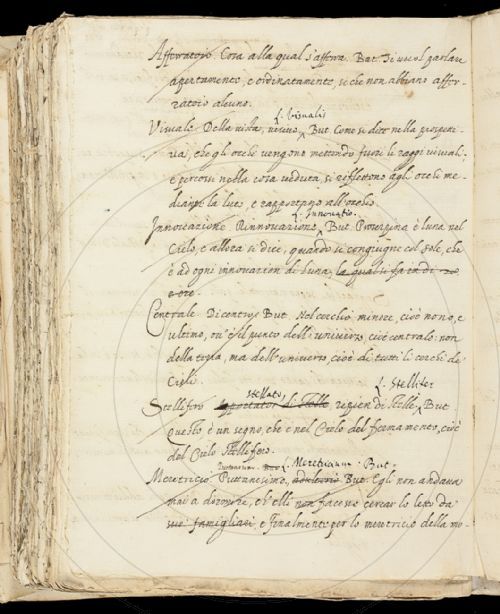 Afferatoio. Cosa alla qual s'afferra. But. Si vuol parlare
apertamente, e ordinatamente, si che non abbiano affer-
ratoio alcuno.
L. Visualis
Visuale Della vista, visivo, But. Come si dice nella prospetti-
va, che gli occhi vengono mettendo fuori li raggi visuali,
e percossi nella cosa veduta, si reflettono agli occhi me-
diante la luce, e rapportano all'occhio
L. Innovatio.
Innovazione Rinnovazione, But. Proserpina è luna nel
Cielo, e allora si dice, quando si congiugne col sole, che
è ad ogni innovazion di luna, la qual si fa in di
e ore.
Centrale Di centro. But. Nel cerchio minore, cioè nono, e
ultimo, ov'è il punto dell'universo, cioè centrale: non
della terra, ma dell'universo, cioè di tutti li cerchi de
Cieli.
stellato L. Stellifer
Stellifero apportator di stelle, ripien di Stelle, But.
questo è un segno, che è nel Cielo del firmamento, cioè
del Cielo stellifero.
L. Meretricium But.
Meretricio Puttanesimo, adulterio But. Egli non andava
mai a dormire, ch'elli non facesse cercar lo letto da
suoi famigliari, e finalmente per lo meretricio della mo-